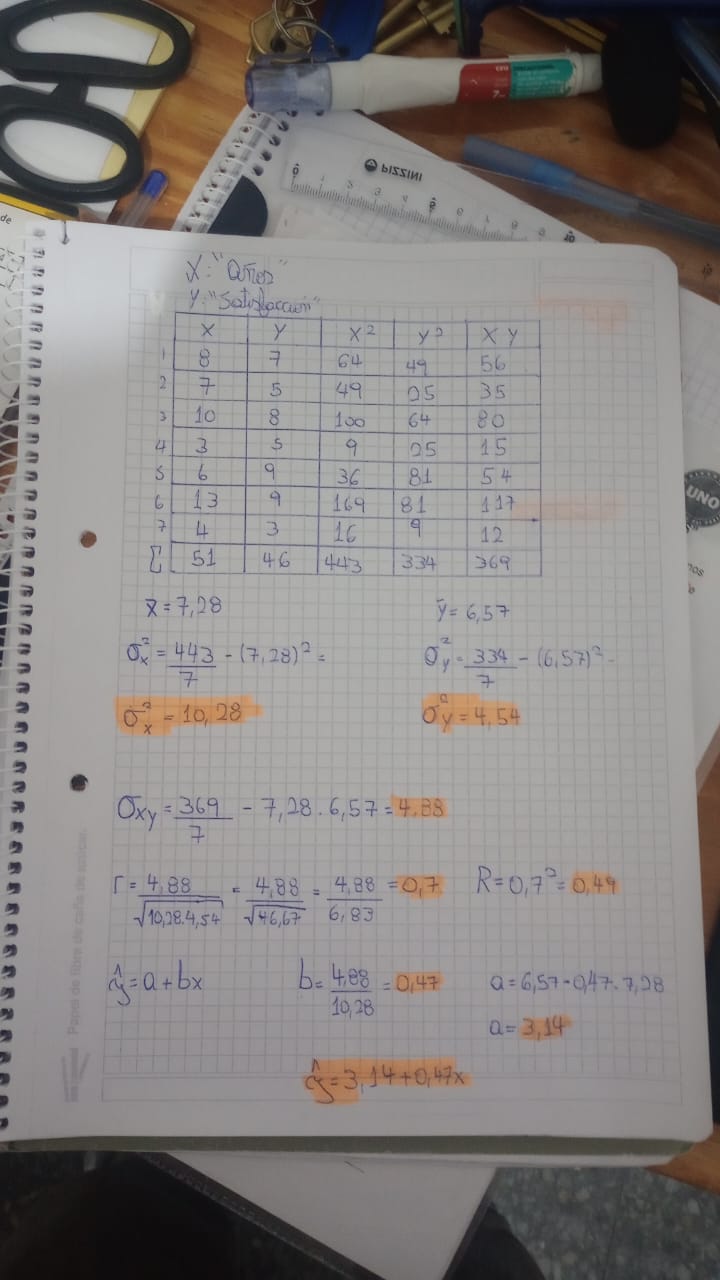 PIZZINI
X: "años"
Y: "Satisfacción"
X Y X² Y² X Y
1 8 7 64 49 56
2 7 5 49 25 35
3 10 8 100 64 80
4 3 5 9 25 15
5 6 9 36 81 54
6 13 9 169 81 117
7 4 3 16 9 12
Σ 51 46 443 334 369
UNO
x̄ = 7,28 ȳ = 6,57
σx² = 443/7 - (7,28)² = σy² = 334/7 - (6,57)² -
σx² = 10,28 σy² = 4,54
σxy = 369/7 - 7,28 . 6,57 = 4.88
r = 4,88/√10,28.4,54 = 4,88/√46,67 = 4,88/6,83 = 0,7 R = 0,7² = 0,49
ŷ = a + bx b = 4,88/10,28 = 0,47 a = 6,57 - 0,47 . 7,28
a = 3,14
ŷ = 3,14 + 0,47x
Papel de fibra de caña de azúcar.